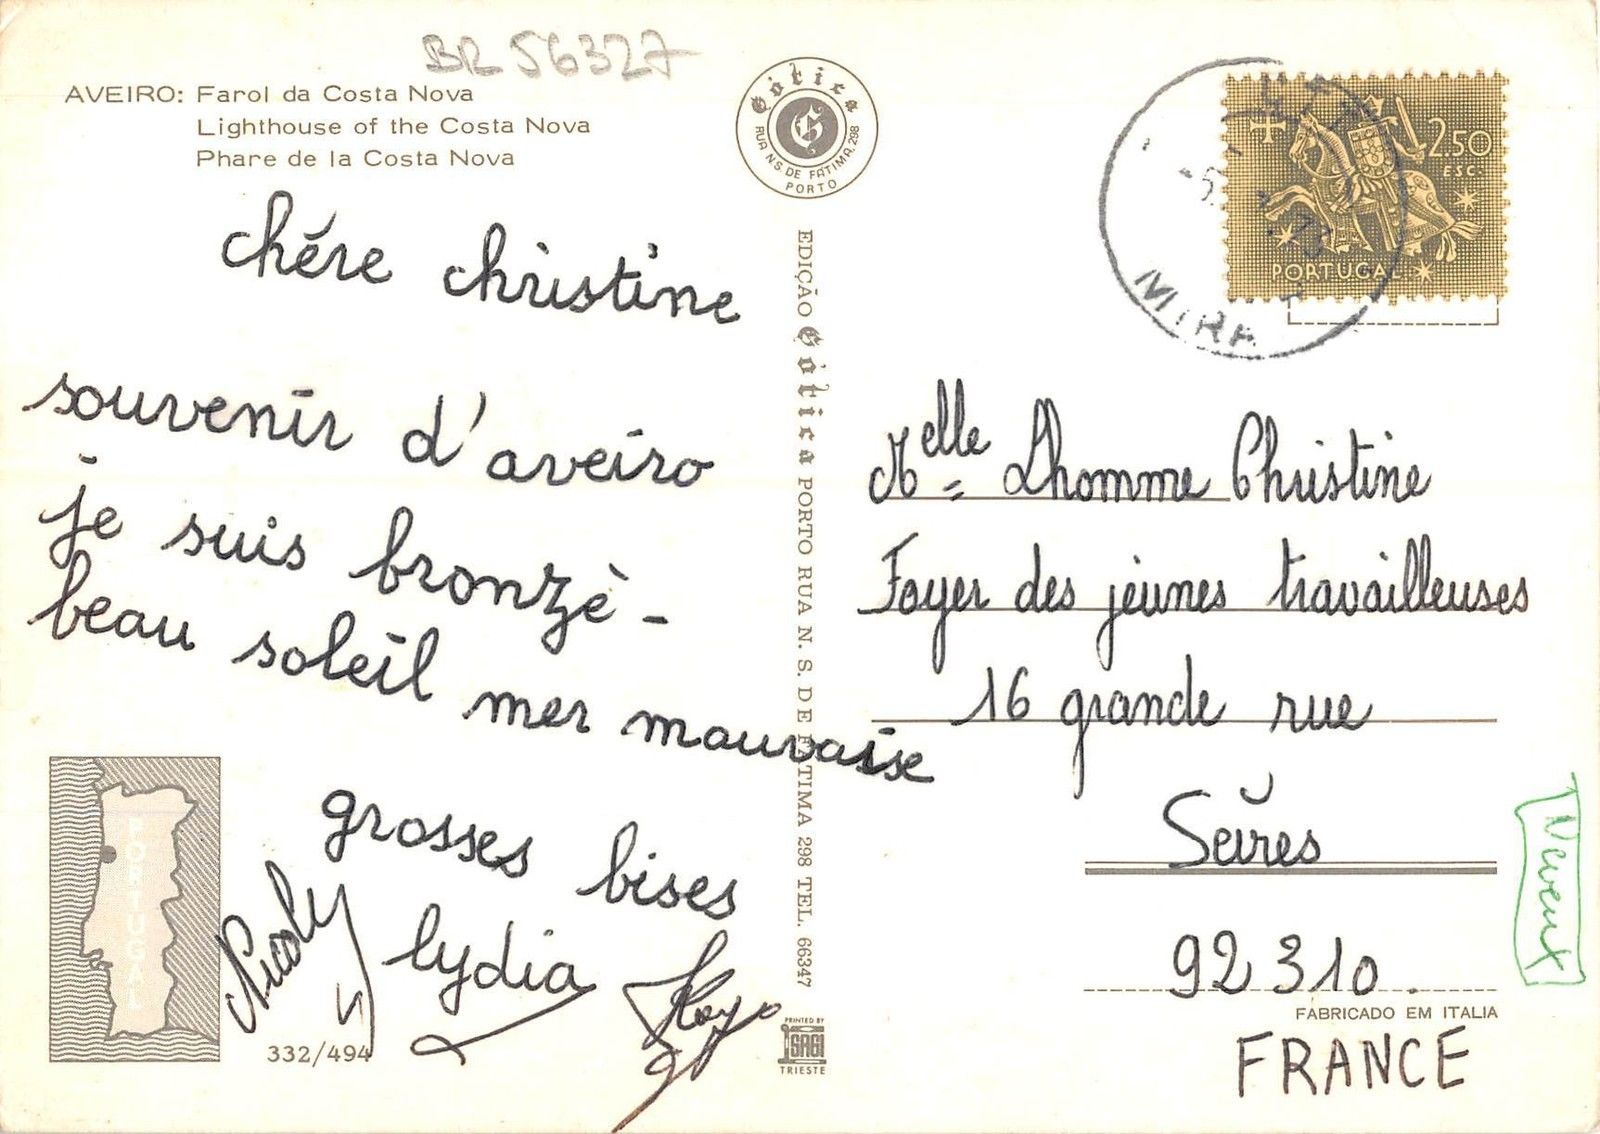 BR 56327
AVEIRO: Farol da Costa Nova
Lighthouse of the Costa Nova
Phare de la Costa Nova
chére christine
souvenir d'aveiro
je suis bronzè -
beau soleil mer mauvaise
grosses bises
Nicoly
lydia
PORTUGAL
332/494
Gótica
G
RUA N.S. DE FÁTIMA, 298
PORTO
EDIÇÃO Gótica PORTO RUA N. S. DE FÁTIMA 298 TEL. 66347
PRINTED BY
SAGI
TRIESTE
2.50
ESC.
PORTUGAL
MIRA
Melle = Lhomme Christine
Foyer des jeunes travailleuses
16 grande rue
Sèvres
92 310.
FABRICADO EM ITALIA
FRANCE